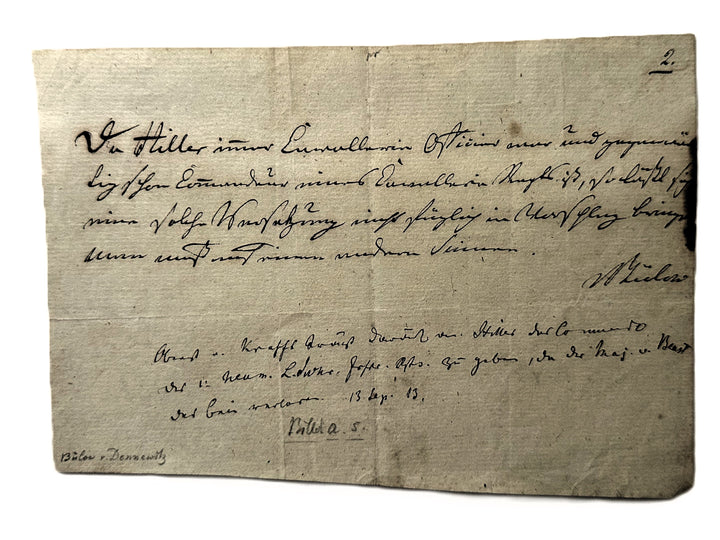 2.
Da Hiller immer Cavallerie Officier war und gegenwär
tig schon Commandeur eines Cavallerie Regts. ist, so läßt sich
eine solche Versetzung nicht füglich in Vorschlag bringen
man muß auf einen andern sinnen.
Bülow
Oberst v. Krafft trägt darauf an Hiller das Commando
des 1. Neum. L. Inf. Regts. zu geben, da der Maj. v.
das bein verloren. 13 Sep. 13.
Bülow v. Dennewitz